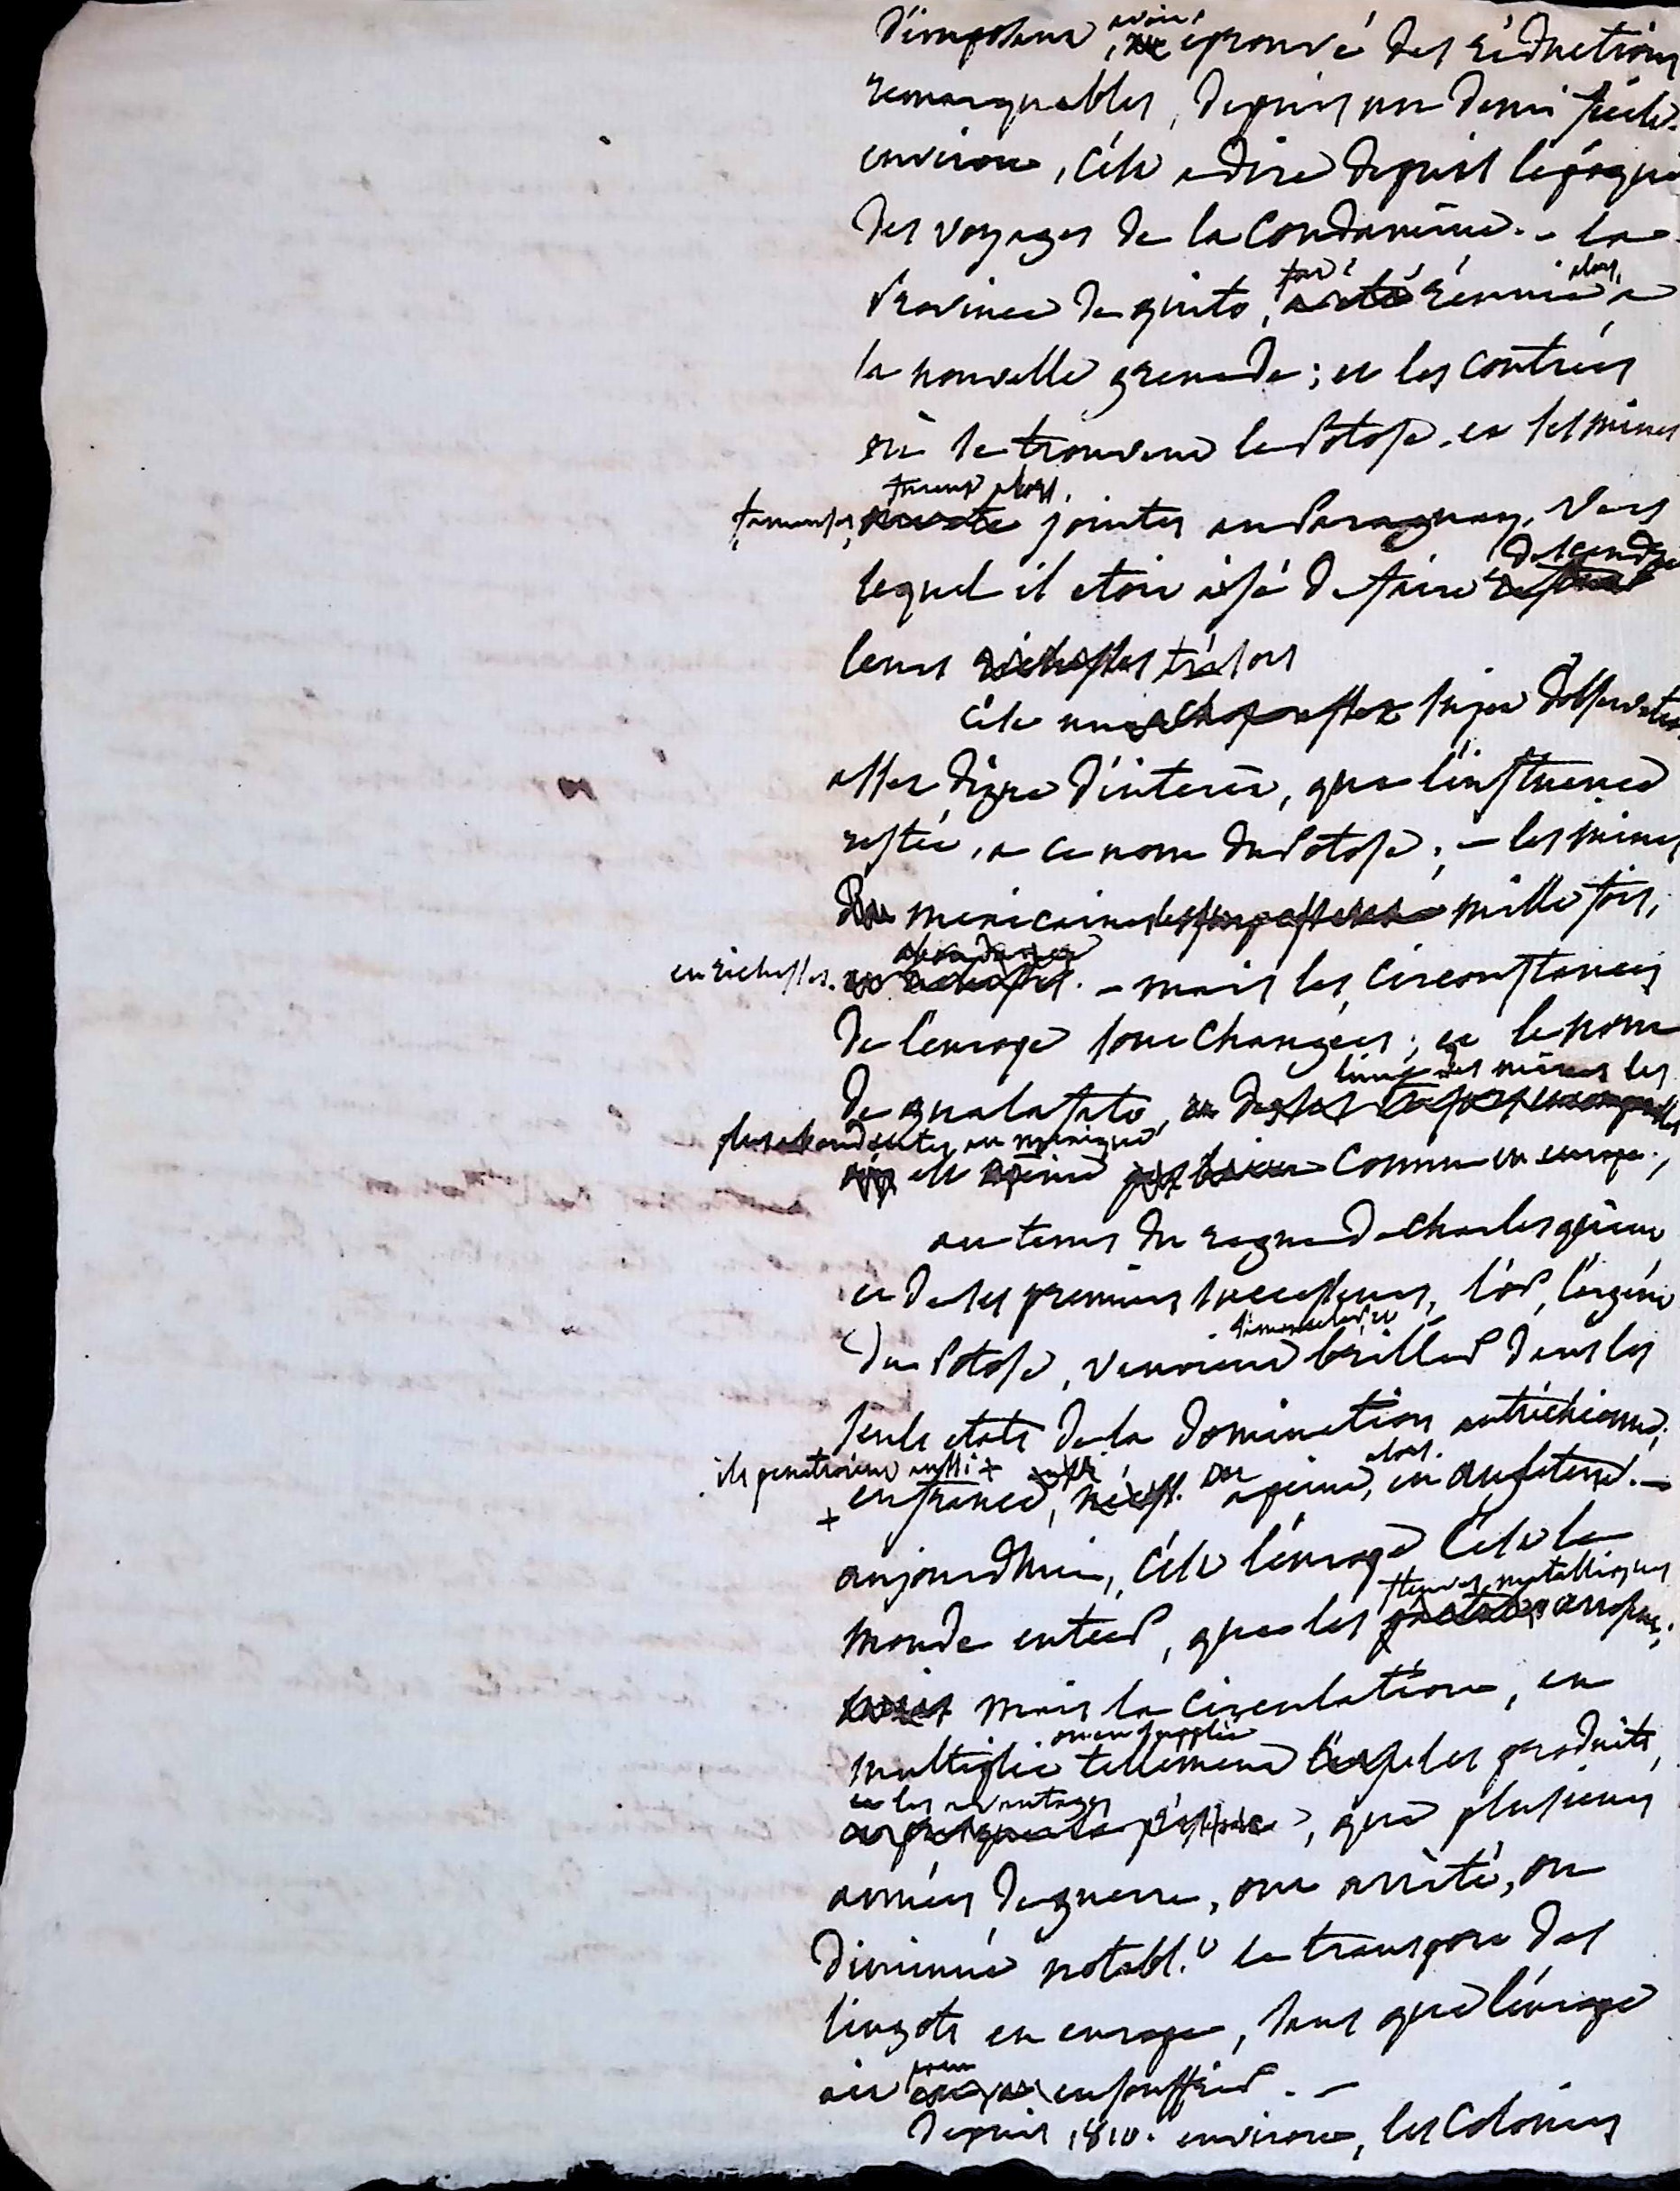 d'imposans, avoir éprouvé des réductions
remarquables, depuis un demi siecle
environ, c'est a dire depuis l'époque
des voyages de la Condamine. - la
Province de quito, fut réunie alors, a
la nouvelle grenade; et les contrées
où se trouvent le Potose, et ses mines
fameuses, furent alors jointes au Paraguay, vers
lequel il etoit aisé de faire descendre
leurs trésors
c'est un sujet d'observation
assez digne d'interêt, que l'influence
restée, a ce nom du Potose; - les mines
mexicaines mille fois,
en richesses. - mais les circonstances
de l'europe sont changées; et le nom
de gualaxato, l'une des mines les
plus abondantes au mexique, est a peine connu en europe.,
au tems du regne de charles quint
et de ses premiers successeurs, l'or, l'argent
du Potose, venoient briller dans les
seuls etats de la domination autrichienne;
ils penetroient aussi +
+ en france, ou a peine, alors. en angleterre. -
aujourdhui, c'est l'europe c'est le
monde entier, que les fleuves metalliques arrosent;
mais la circulation, en
multiplie ou en supplée tellement les produits,
et les avantages, que plusieurs
années de guerre, ont arrêté, ou
diminué notabl.t le transport des
lingots en europe, sans que l'europe
ait paru en souffrir. -
Depuis 1810. environ, les colonies